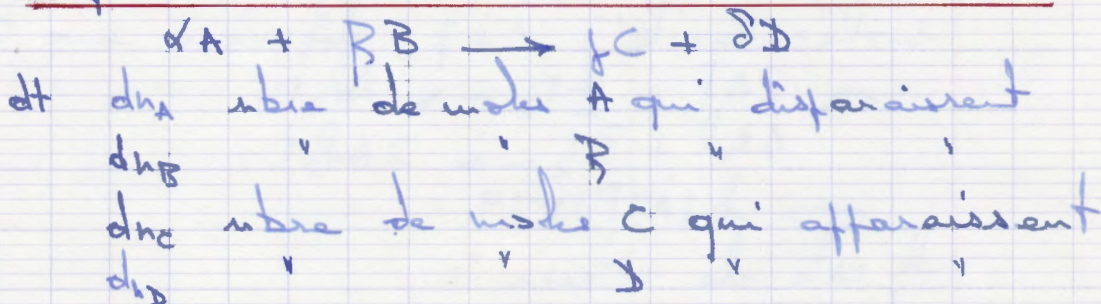 αA + βB → γC + δD
dt dn_A nbre de moles A qui disparaissent
dn_B " " B " "
dn_C nbre de moles C qui apparaissent
dn_D " " D " "